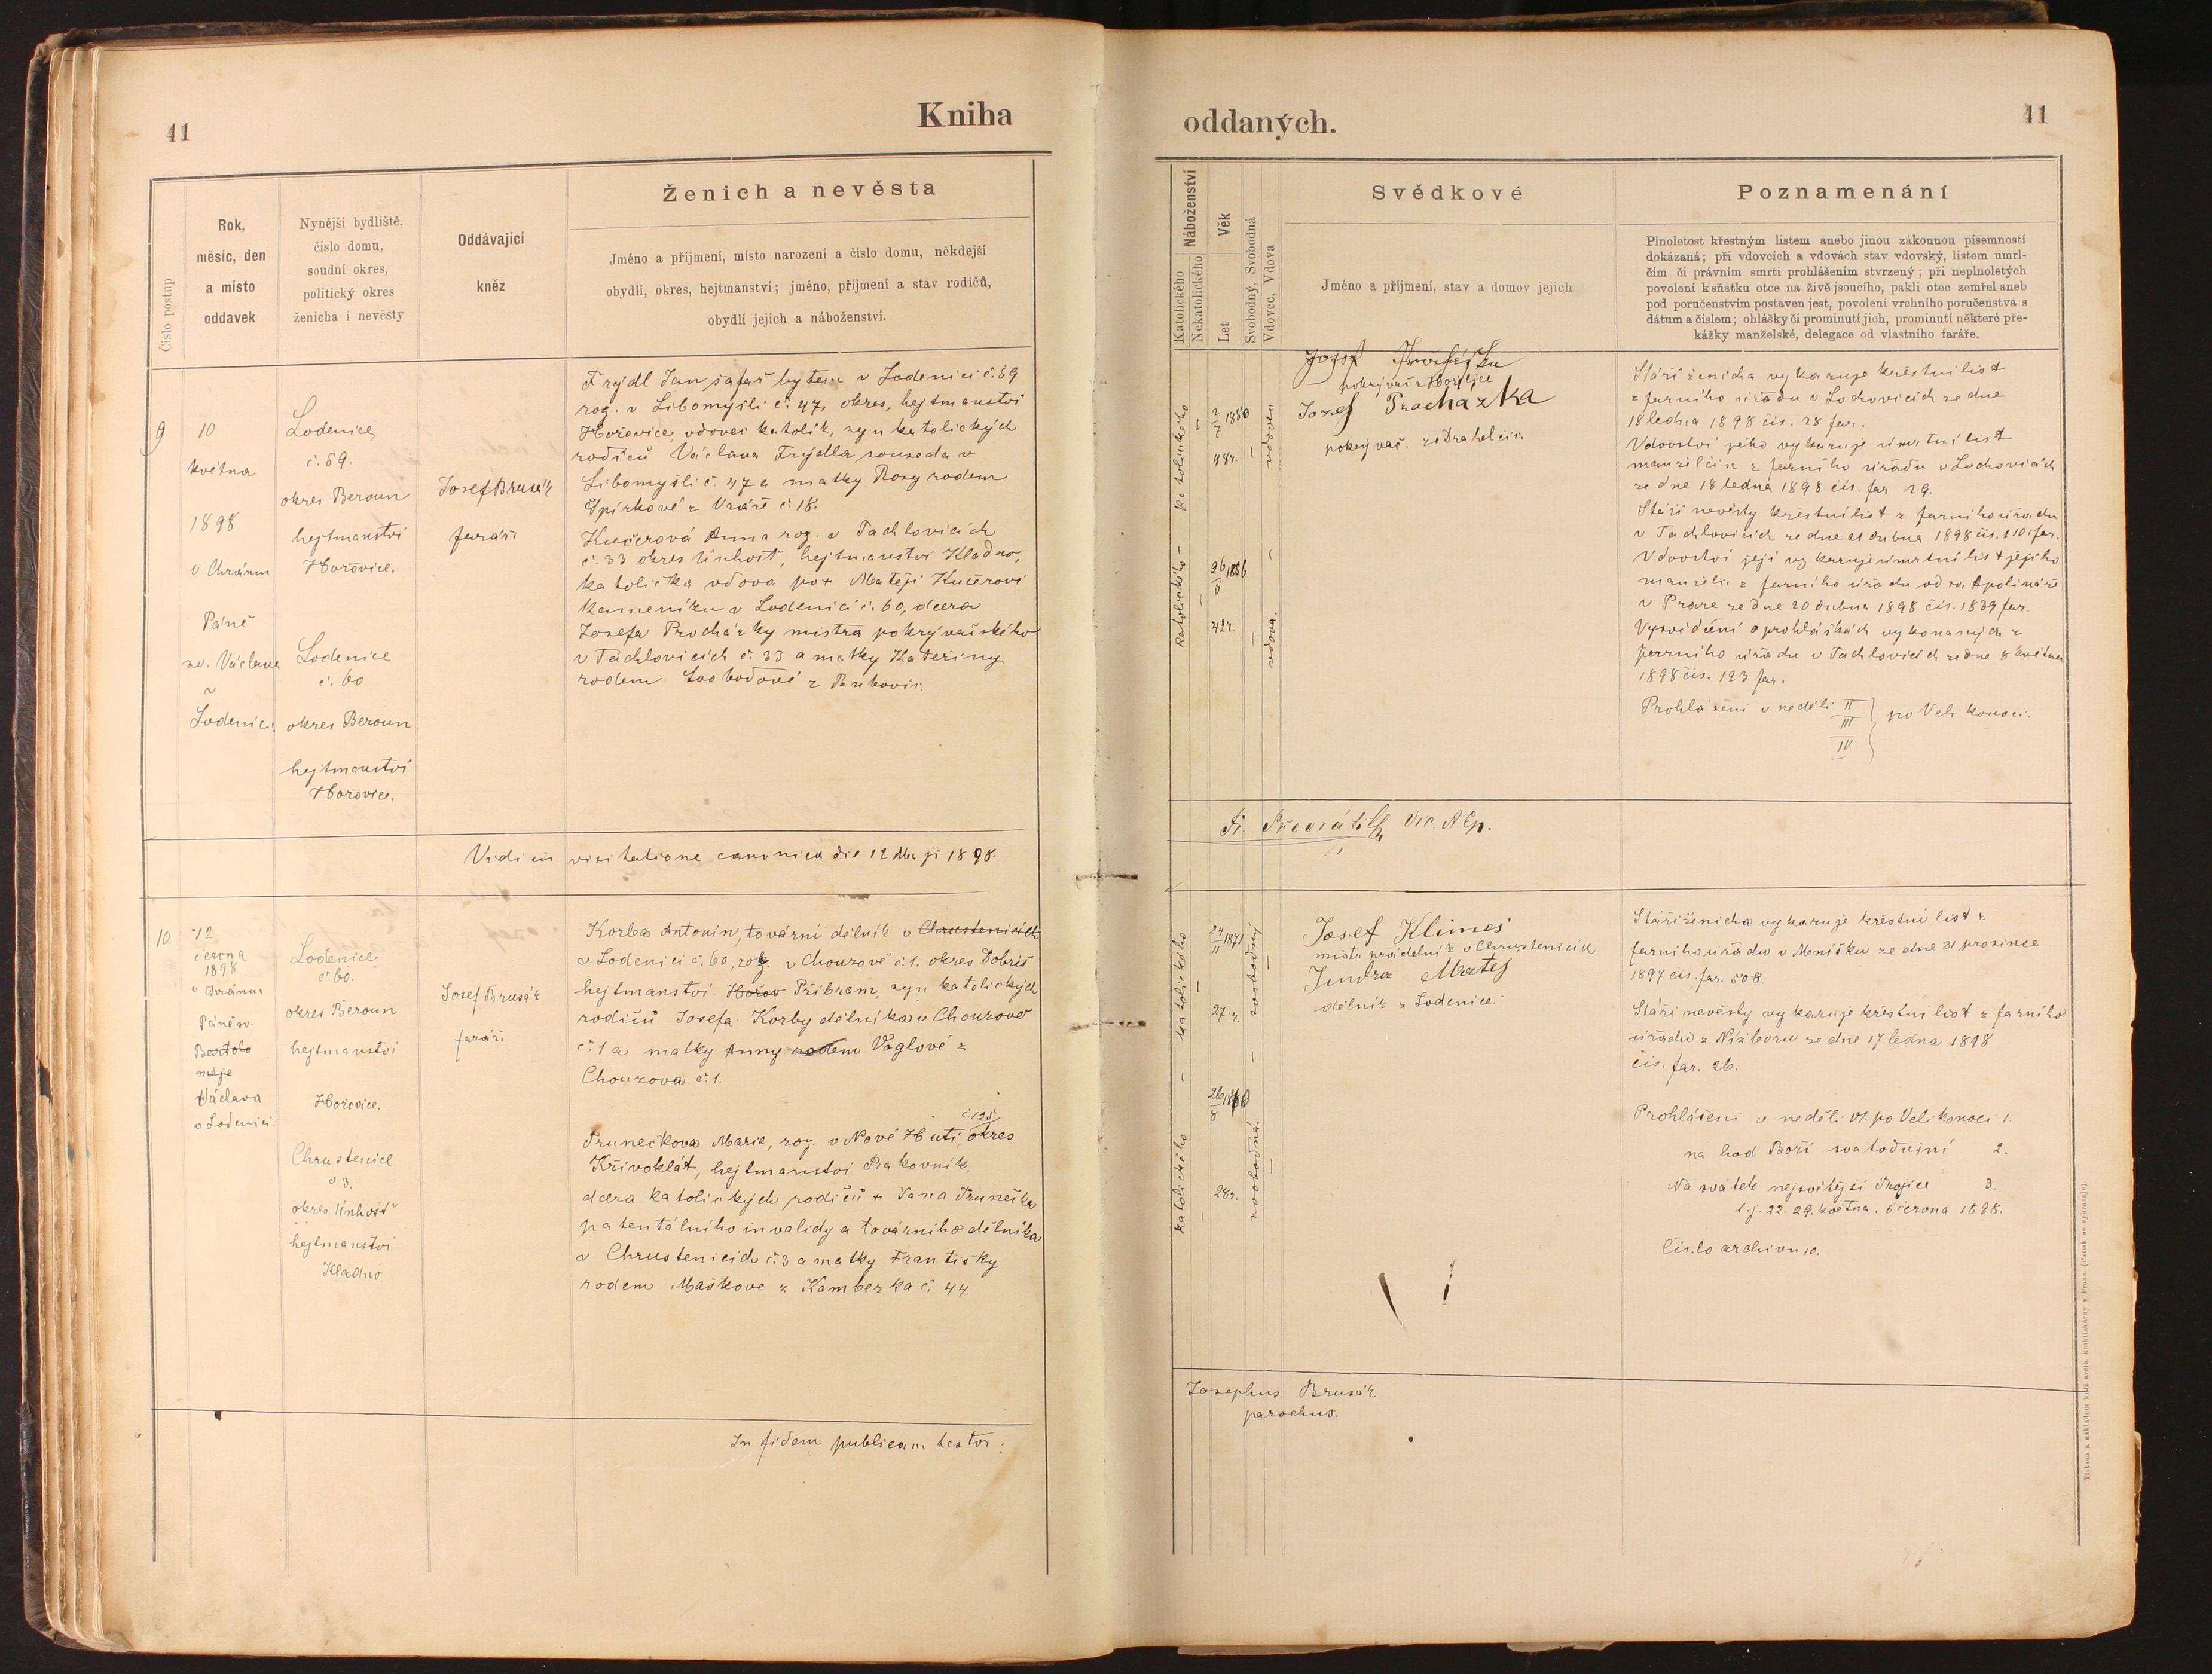 41
Kniha
Číslo postup
Rok,
měsíc, den
a místo
oddavek
Nynější bydliště,
číslo domu,
soudní okres,
politický okres
ženicha i nevěsty
Oddávající
kněz
Ženich a nevěsta
Jméno a příjmení, místo narození a číslo domu, někdejší
obydlí, okres, hejtmanství; jméno, příjmení a stav rodičů,
obydlí jejich a náboženství.
9
10
května
1898
v Chrámu
Páně
sv. Václava
v
Lodenici.
Lodenice
č. 59.
okres Beroun
hejtmanství
Hořovice.
Lodenice
č. 60
okres Beroun
hejtmanství
Hořovice.
Josef Brusák
farář
Frýdl Jan šafář bytem v Lodenici č. 59
roz. v Libomyšli č. 47, okres, hejtmanství
Hořovice, vdovec katolík, syn katolických
rodičů Václava Frýdla souseda v
Libomyšli č. 47 a matky Rosy rodem
Spirkové z Vráže č. 18.
Kučerová Anna roz. v Tachlovicích
č. 33 okres Unhošť, hejtmanství Kladno,
katolička vdova po + Matěji Kučerovi
kameníku v Lodenici č. 60, dcera
Josefa Procházky mistra pokrývačského
v Tachlovicích č. 33 a matky Kateřiny
rodem Svobodové z Bubovic.
Vidi in visitatione canonica die 12 Maji 1898.
10
12
června
1898
v Chrámu
Páně sv.
Bartolo
měje
Václava
v Lodenici.
Lodenice
č. 60.
okres Beroun
hejtmanství
Hořovice.
Chrustenice
č. 3.
okres Unhošť
hejtmanství
Kladno
Josef Brusák
farář
Korba Antonín, tovární dělník v Chrustenicích
v Lodenici č. 60, roz. v Chouzově č. 1. okres Dobříš
hejtmanství Hořov Příbram, syn katolických
rodičů Josefa Korby dělníka v Chouzově
č. 1 a matky Anny rodem Voglové z
Chouzova č. 1.
č. 125
Trunečkova Marie, roz. v Nové Huti, okres
Křivoklát, hejtmanství Rakovník,
dcera katolických rodičů + Jana Trunečka
patentálního invalidy a továrního dělníka
v Chrustenicích č. 3 a matky Františky
rodem Maškove z Kamberka č. 44.
In fidem publicam testor:
oddaných.
41
Náboženství
Katolického
Nekatolického
Věk
Let
Svobodný, Svobodná
Vdovec, Vdova
Svědkové
Jméno a příjmení, stav a domov jejich
Poznamenání
Plnoletost křestným listem anebo jinou zákonnou písemností
dokázaná; při vdovcích a vdovách stav vdovský, listem umrl-
čím či právním smrti prohlášením stvrzený; při neplnoletých
povolení k sňatku otce na živě jsoucího, pakli otec zemřel aneb
pod poručenstvím postaven jest, povolení vrchního poručenstva s
dátum a číslem; ohlášky či prominutí jich, prominutí některé pře-
kážky manželské, delegace od vlastního faráře.
katolického
2/7 1850
48 r.
vdovec
katolického
26/8 1856
42 r.
vdova.
Josef
Josef Procházka
pokrývač. z Drahelčic.
Stáří ženicha vykazuje křestní list
z farního úřadu v Lochovicích ze dne
18 ledna 1898 čís. 28 far.
Vdovství jeho vykazuje úmrtní list
manželčin z farního úřadu v Lochovicích
ze dne 18 ledna 1898 čís. far 29.
Stáří nevěsty křestní list z farního úřadu
v Tachlovicích ze dne 21 dubna 1898 čís. 110 far.
Vdovství její vykazuje úmrtní list jejího
manžela z farního úřadu od sv. Apolináře
v Praze ze dne 20 dubna 1898 čís. 1839 far.
Vysvědčení o prohláškách vykonaných z
farního úřadu v Tachlovicích ze dne 8 května
1898 čís. 123 far.
Prohlášení v neděli II
III
IV
po Velikonoci.
Vic. Aep.
katolického
24/11 1871
27 r.
svobodný
katolického
28 r.
svobodná.
Josef Klimeš
mistr přádelní z Chrustenicích
Jindra Matěj
dělník z Lodenice.
Stáří ženicha vykazuje křestní list z
farního úřadu v Mníšku ze dne 31 prosince
1897 čís. far. 508.
Stáří nevěsty vykazuje křestní list z farního
úřadu z Nižboru ze dne 17 ledna 1898
čís. far. 26.
Prohlášení v neděli VI. po Velikonoci 1.
na hod Boží svatodušní 2.
Na svátek nejsvětější Trojice 3.
t. j. 22. 29. května. 5 června 1898.
Číslo archivu 10.
Josephus Brusák
parochus.